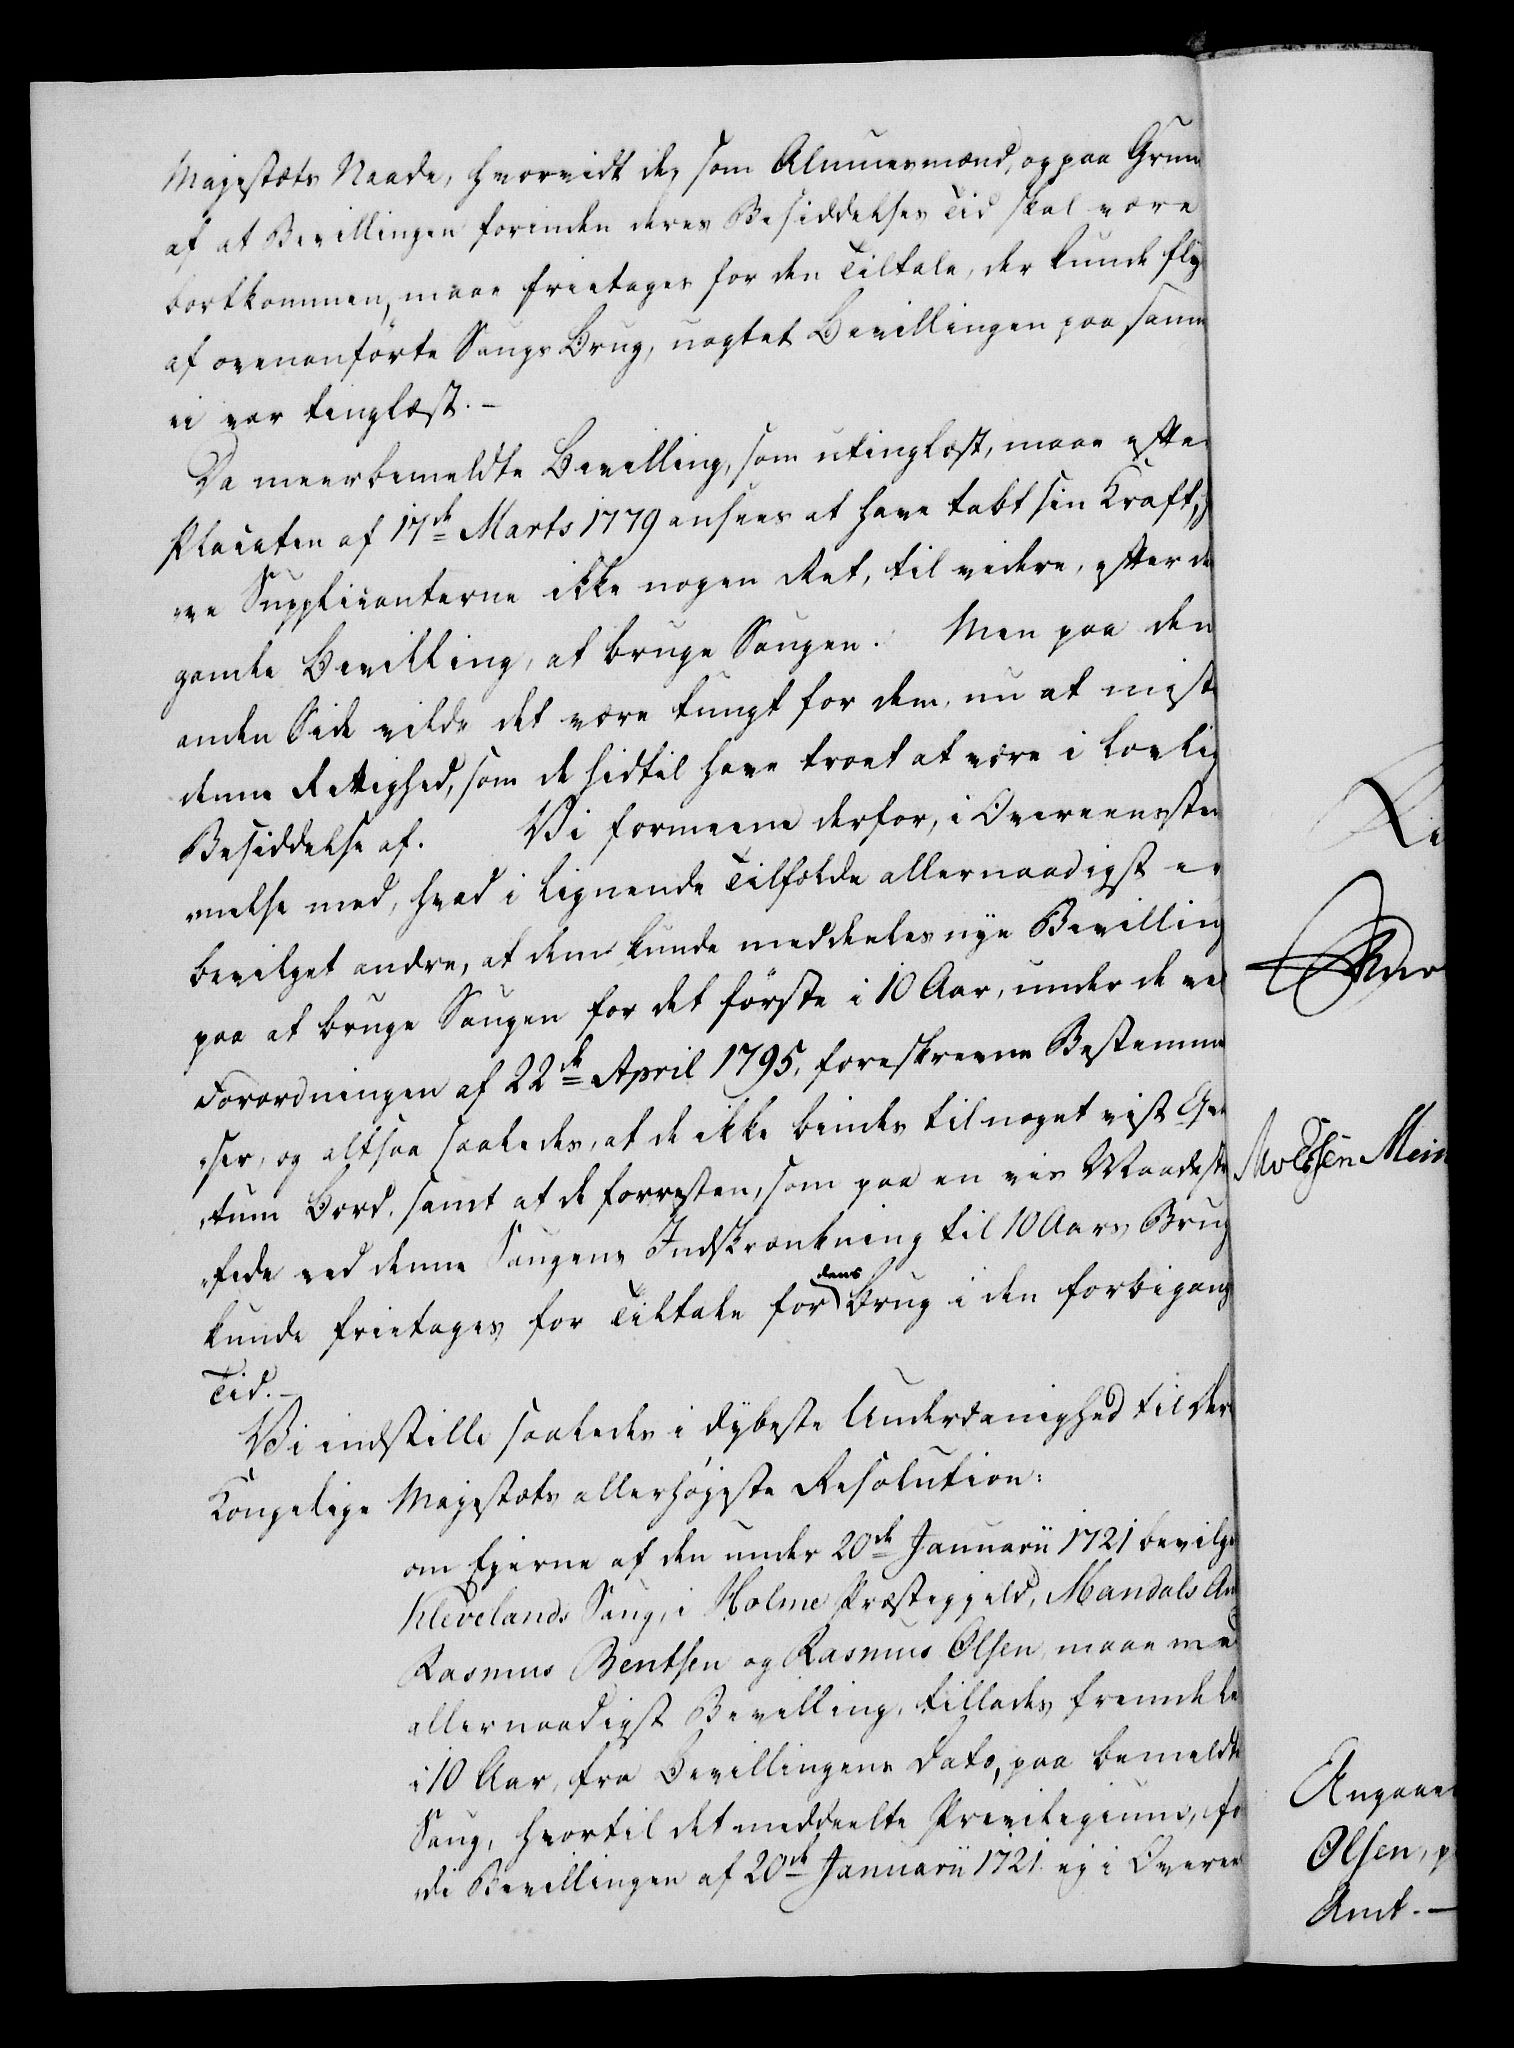 Majestæts Naade, hvorvidt de, som Almuesmænd, og paa Grun
af at Bevillingen forinden deres Besiddelses Tid skal være
bortkommen, maae frietages for den Tiltale, der kunde flyd
af ovenanførte Saugs Brug, uagtet Bevillingen paa samm
ei var tinglæst. –
Da meerbemeldte Bevilling, som utinglæst, maae efter
Placaten af 17de Marts 1779 ansees at have tabt sin Kraft, h
ve Supplicanterne ikke nogen Ret, til videre, efter de
gamle Bevilling, at bruge Saugen. Men paa den
anden Side vilde det være tungt for dem, nu at miste
denne Rettighed, som de hidtil have troet at være i lovlig
Besiddelse af. Vi formeene derfor, i Overeenstem
melse med, hvad i lignende Tilfælde allernaadigst er
bevilget andre, at dem kunde meddeeles nye Bevilling
paa at bruge Saugen for det første i 10 Aar, under de ved
Forordningen af 22de April 1795, foreskrevne Bestemme
ser, og altsaa saaledes, at de ikke bindes til noget vist Qvan
tum Bord, samt at de forresten, som paa en vis Maade stra
fede ved denne Saugens Indskrænkning til 10 Aars Brug
kunde frietages for Tiltale for dens Brug i den forbigang
Tid. –
Vi indstille saaledes i dybeste Underdanighed til Der
Kongelige Majestæts allerhøjeste Resolution:
om Ejerne af den under 20de Januarii 1721 bevilge
Klevelands Saug, i Holme Præstegjeld, Mandals Am
Rasmus Bentsen og Rasmus Olsen, maae med
allernaadigst Bevilling, tillades fremdeles
i 10 Aar, fra Bevillingens Dato, paa bemeldte
Saug, hvortil det meddeelte Privilegium, for
di Bevillingen af 20de Januarii 1721 ej i Overee
Angaae
Olsen, p
Amt. –